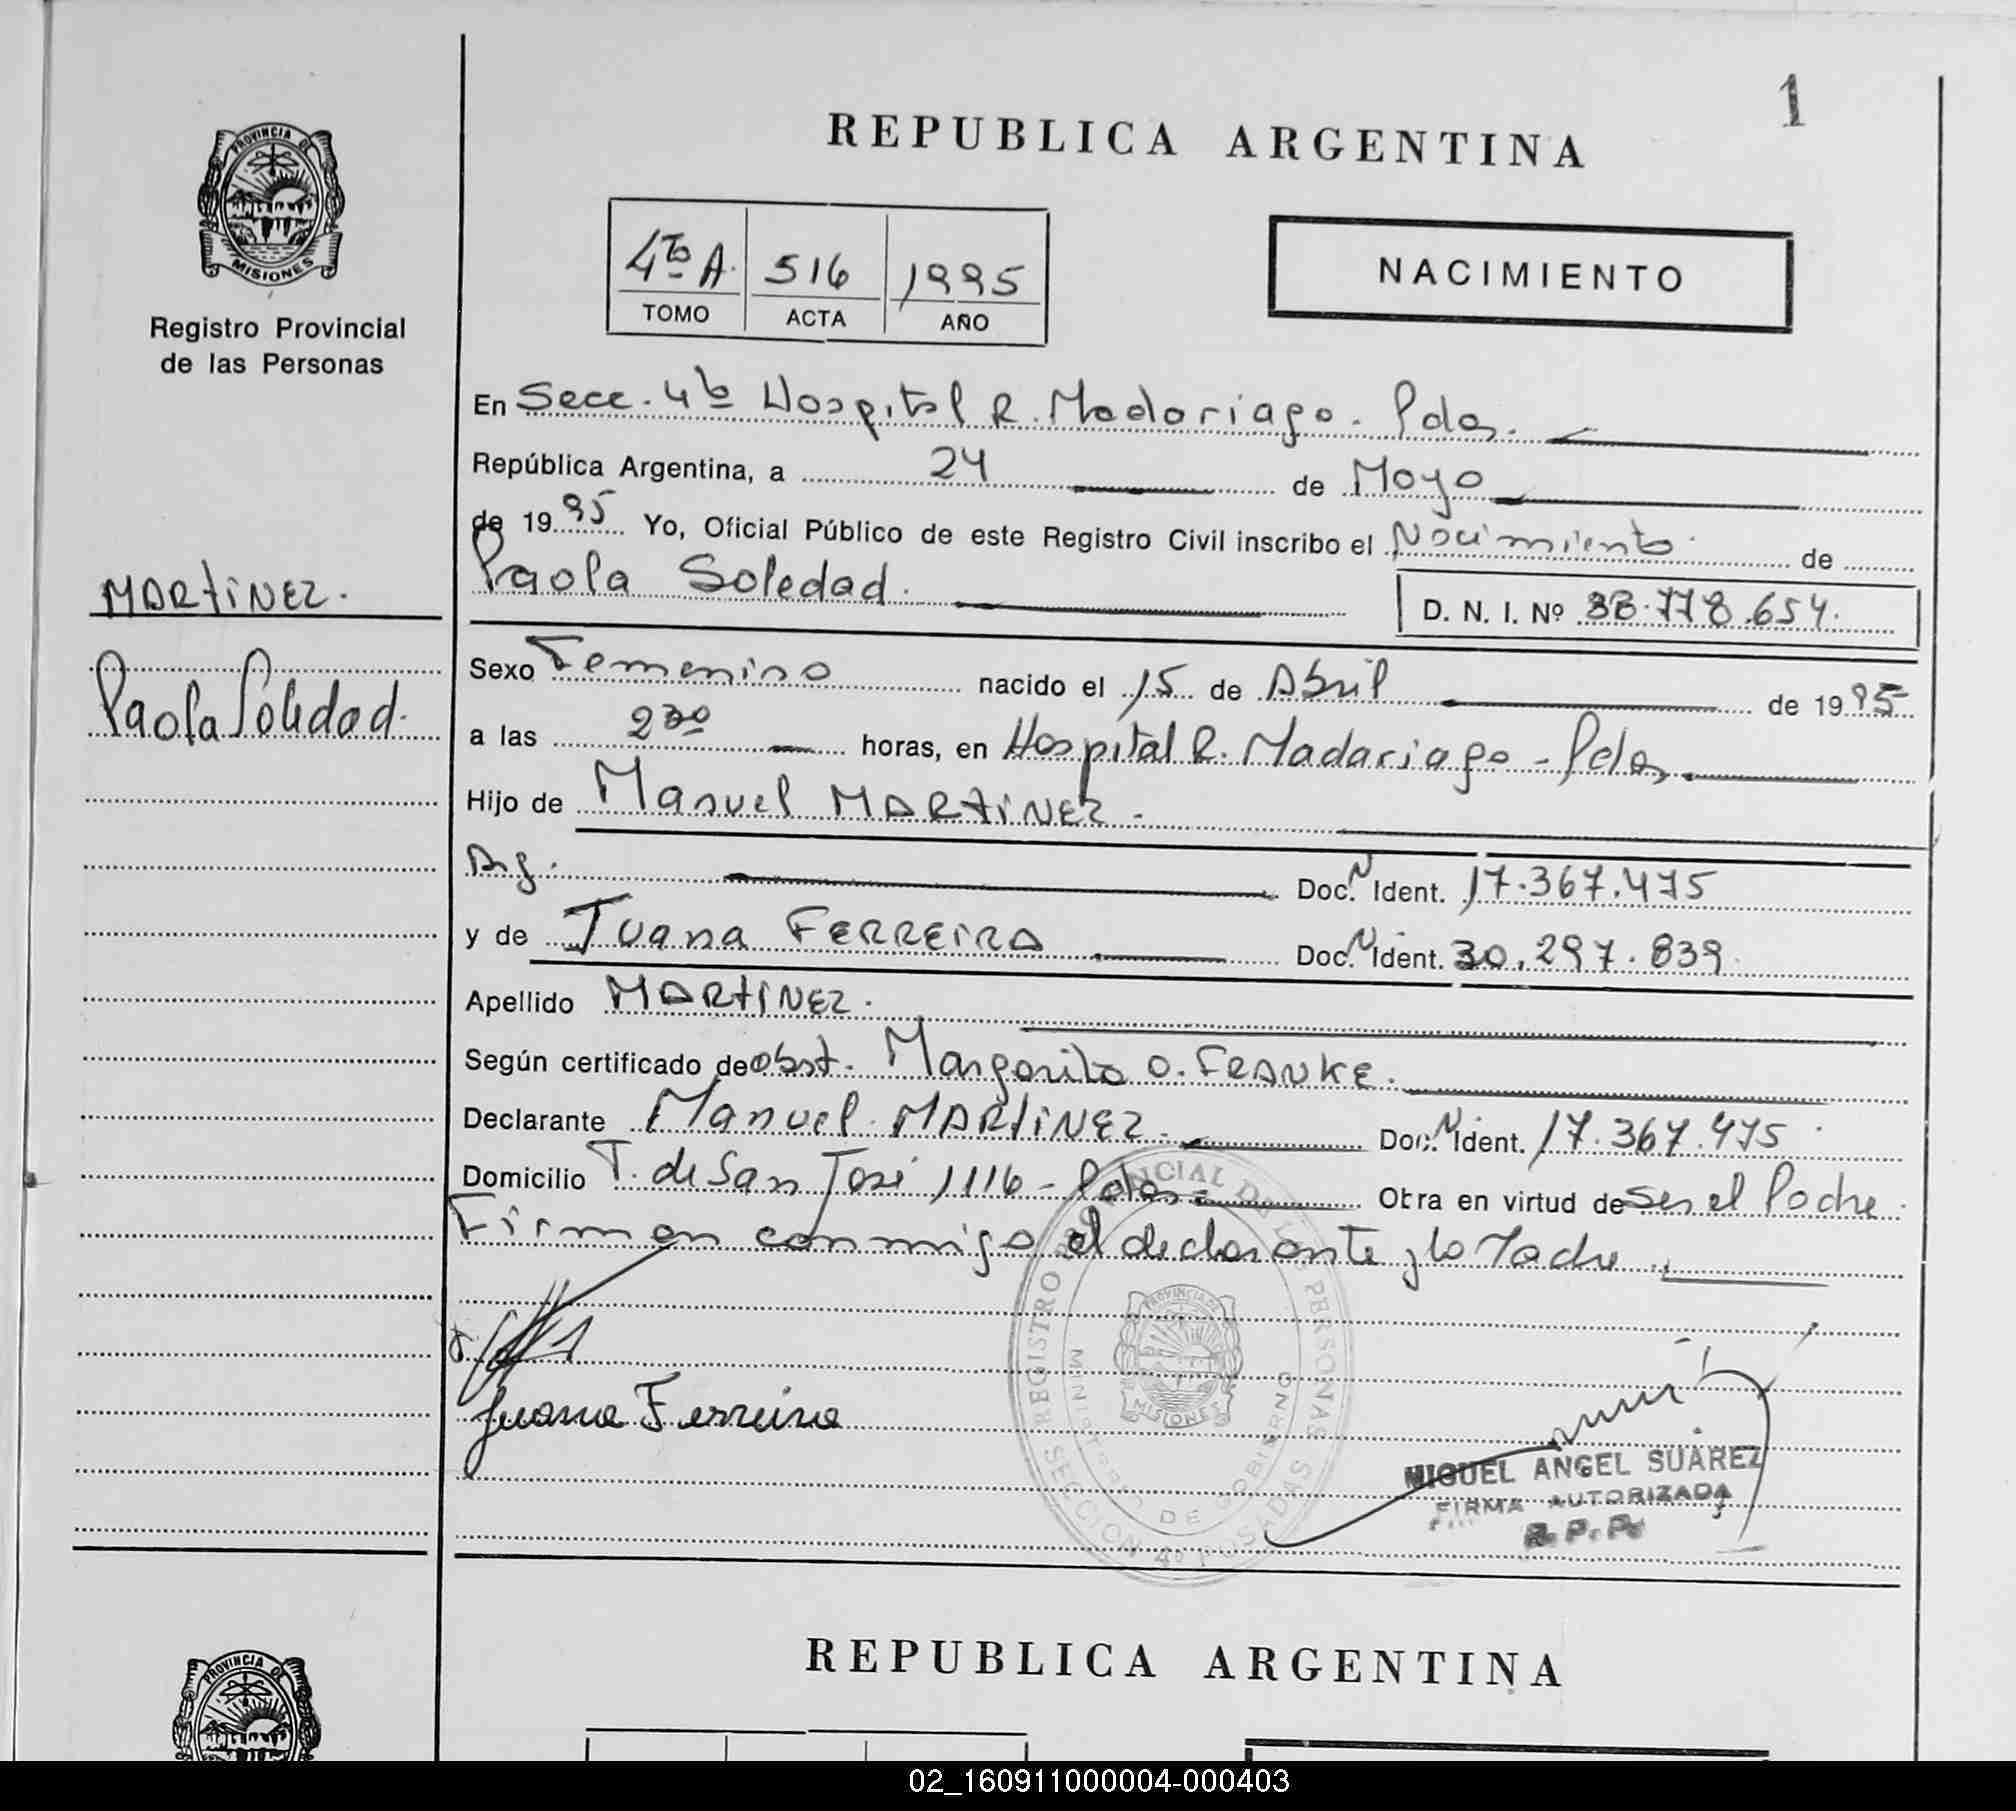 1
REPUBLICA ARGENTINA
PROVINCIA DE
MISIONES
Registro Provincial
de las Personas
4to A. 516 1995
TOMO ACTA AÑO
NACIMIENTO
En Secc. 4ta Hospital R. Madariaga - Pdas.
República Argentina, a 24 de Mayo
de 1995 Yo, Oficial Público de este Registro Civil inscribo el Nacimiento de
Paola Soledad.
D. N. I. Nº 38.778.654.
MARTINEZ.
Paola Soledad.
Sexo Femenino nacido el 15 de Abril de 1995
a las 230 horas, en Hospital R. Madariaga - Pdas.
Hijo de Manuel MARTINEZ -
Arg. Doc. N Ident. 17.367.475
y de Juana FERREIRA Doc. N Ident. 30.297.839
Apellido MARTINEZ.
Según certificado de Obst. Margarita O. FRANKE.
Declarante Manuel MARTINEZ - Doc. N Ident. 17.367.475
Domicilio T. de San José 1116 - Pdas - Obra en virtud de Ser el Padre.
Firman conmigo el declarante y la Madre
Juana Ferreira
REGISTRO PROVINCIAL DE LAS PERSONAS
MINISTERIO DE GOBIERNO
PROVINCIA DE
MISIONES
SECCION 4º POSADAS
MIGUEL ANGEL SUAREZ
FIRMA AUTORIZADA
R. P. P.
REPUBLICA ARGENTINA
PROVINCIA DE
02_160911000004-000403